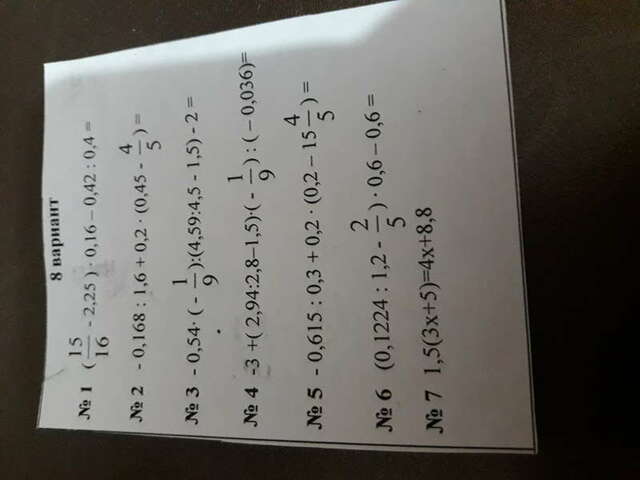 8 вариант
№ 1 (15/16 - 2,25 ) · 0,16 – 0,42 : 0,4 =
№ 2 - 0,168 : 1,6 + 0,2 · (0,45 - 4/5) =
№ 3 - 0,54· ( - 1/9):(4,59:4,5 - 1,5) - 2 =
№ 4 -3 +( 2,94:2,8–1,5)·( - 1/9) : ( – 0,036)=
№ 5 - 0,615 : 0,3 + 0,2 · (0,2 – 15 4/5) =
№ 6 (0,1224 : 1,2 - 2/5) · 0,6 – 0,6 =
№ 7 1,5(3x+5)=4x+8,8